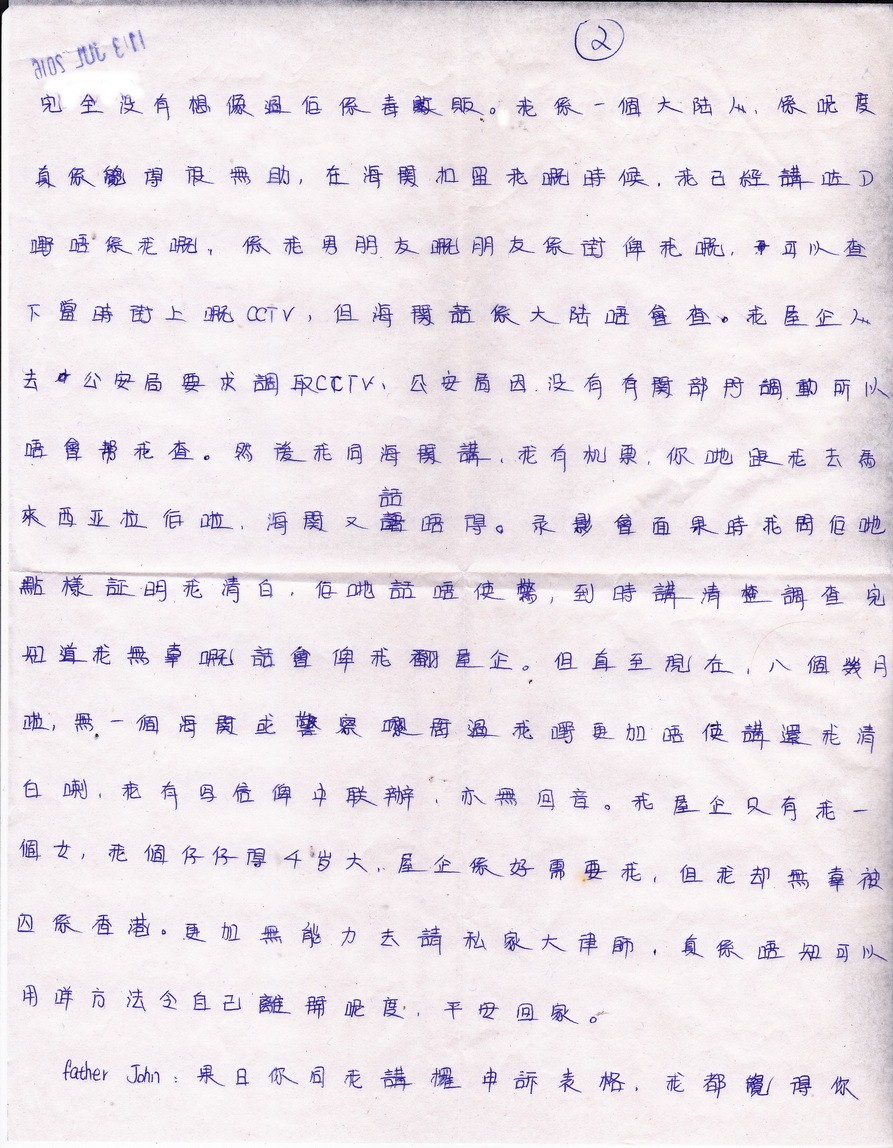 ②
13 JUL 2016
完全没有想像過佢係毒販。我係一個大陆人，係呢度
真係覺得很無助，在海関扣留我嘅時候，我己經講咗D
嘢唔係我嘅，係我男朋友嘅朋友係街俾我嘅，可以查
下當時街上嘅CCTV，但海関話係大陆唔會查。我屋企人
去公安局要求調取CCTV，公安局因没有有関部門調動所以
唔會帮我查。然後我同海関講，我有机票，你哋跟我去馬
來西亚拉佢啦，海関又話唔得。录影會面果時我問佢哋
點樣証明我清白，佢哋話唔使驚，到時講清楚調查完
知道我無辜嘅話會俾我翻屋企。但直至現在，八個幾月
啦，無一個海関或警察嚟問過我嘢更加唔使講還我清
白喇，我有写信俾中联辦，亦無回音。我屋企只有我一
個女，我個仔仔得4岁大，屋企係好需要我，但我却無辜被
囚係香港。更加無能力去請私家大律師，真係唔知可以
用咩方法令自己離開呢度，平安回家。
father John：果日你同我講攞申訴表格，我都覺得你